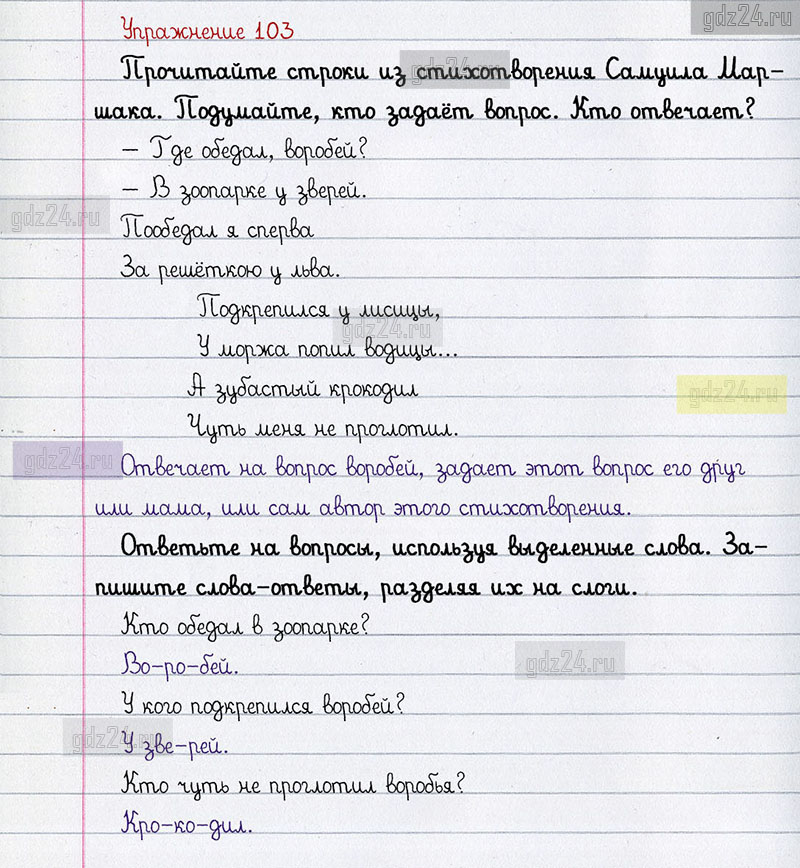 gdz24.ru
Упражнение 103
Прочитайте строки из стихотворения Самуила Мар-
gdz24.ru
шака. Подумайте, кто задаёт вопрос. Кто отвечает?
– Где обедал, воробей?
– В зоопарке у зверей.
gdz24.ru
Пообедал я сперва
За решёткою у льва.
Подкрепился у лисицы,
gdz24.ru
У моржа попил водицы...
А зубастый крокодил
gdz24.ru
Чуть меня не проглотил.
gdz24.ru
Отвечает на вопрос воробей, задает этот вопрос его друг
или мама, или сам автор этого стихотворения.
Ответьте на вопросы, используя выделенные слова. За-
пишите слова-ответы, разделяя их на слоги.
Кто обедал в зоопарке?
Во-ро-бей.
gdz24.ru
У кого подкрепился воробей?
gdz24.ru
У зве-рей.
Кто чуть не проглотил воробья?
Кро-ко-дил.